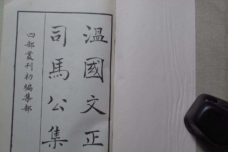 溫國文正
司馬公集
四部叢刊初編集部